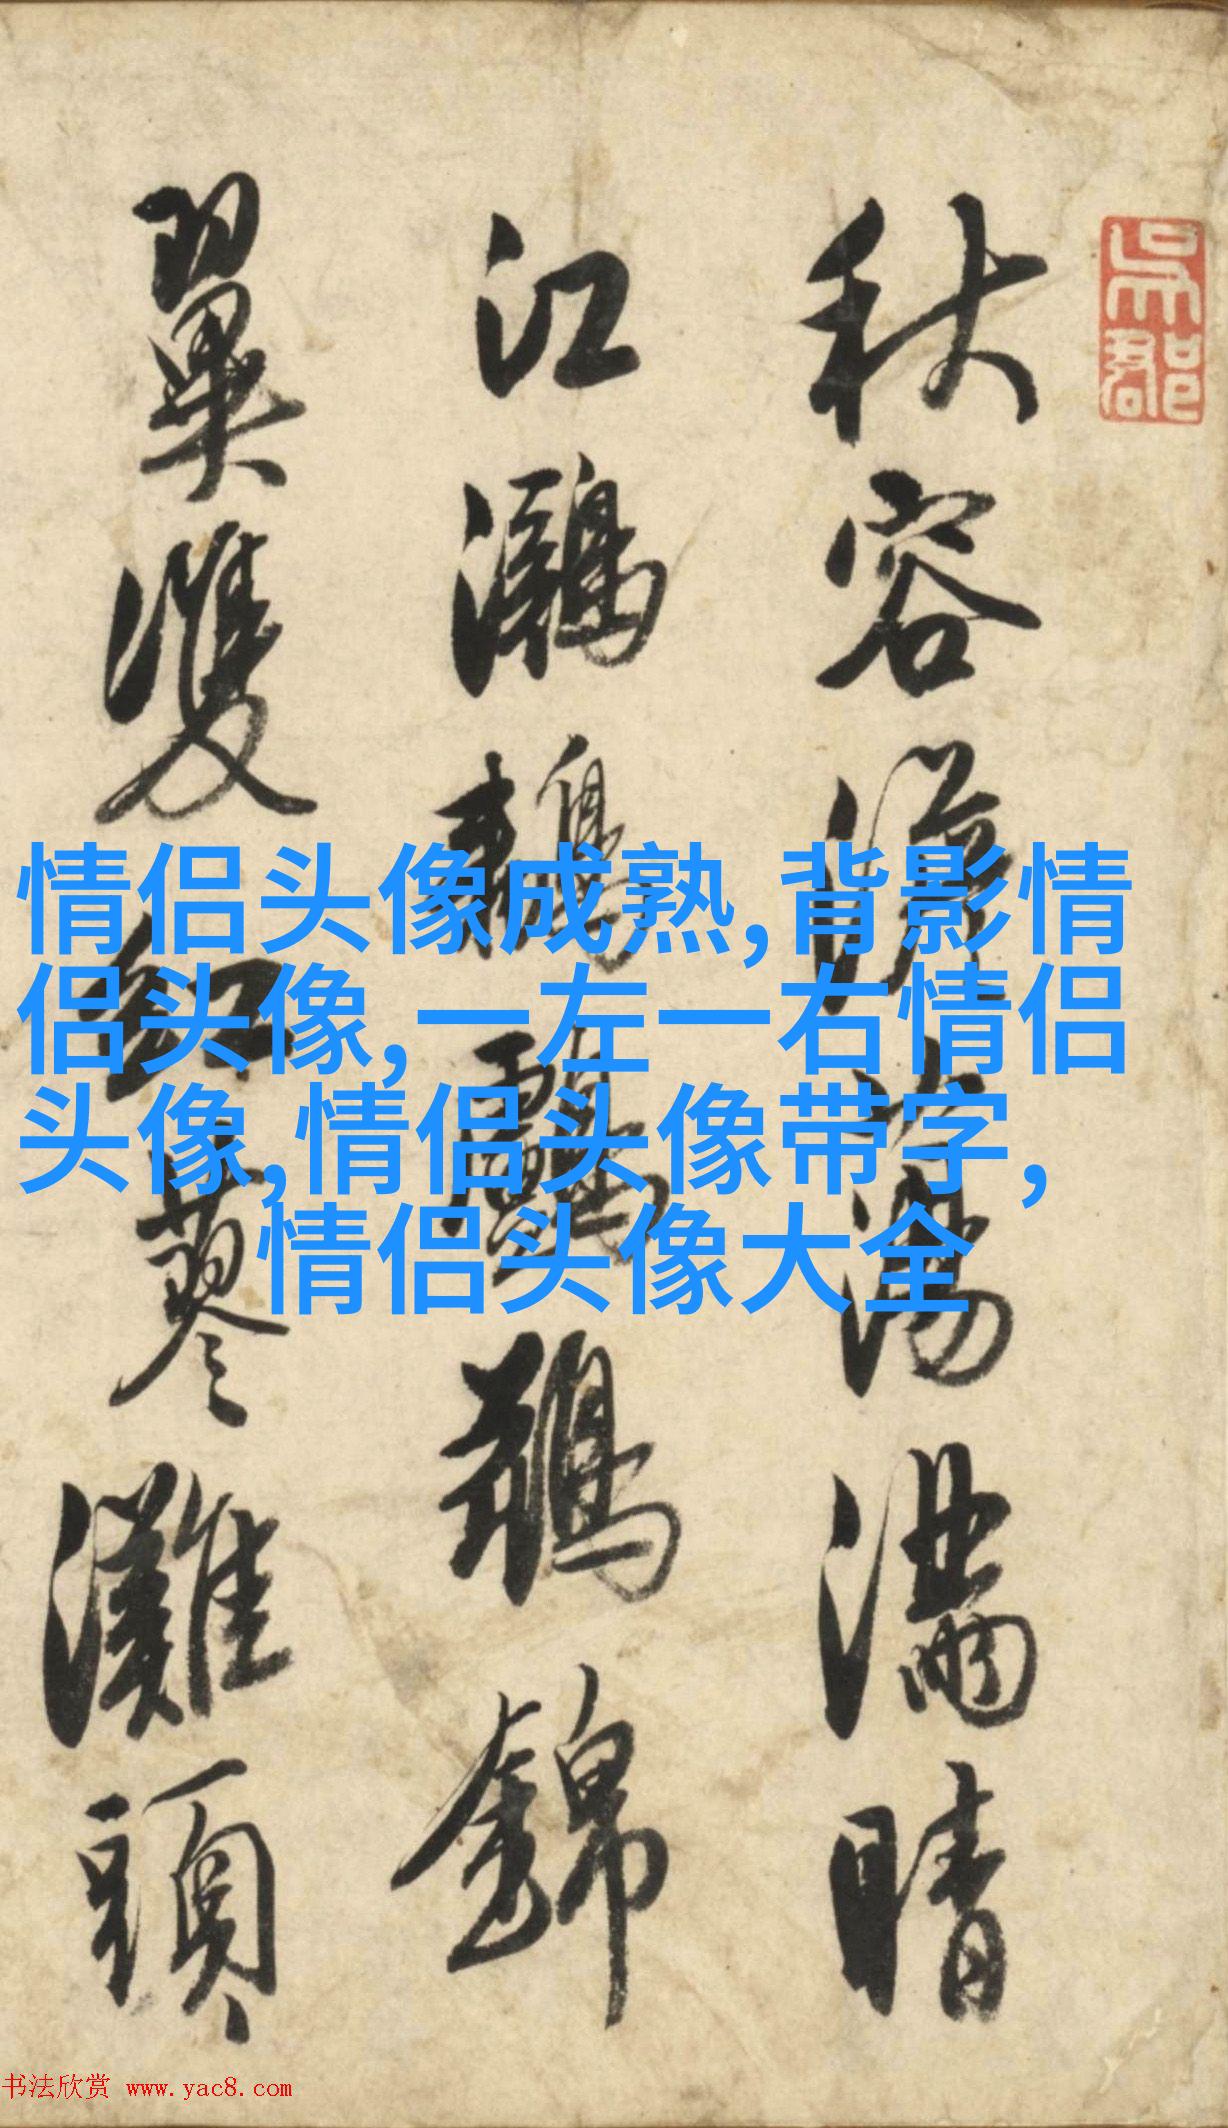 吳郡
秋容淡蕩滿晴
江鸂鶒鸕鷀錦
翼雙紅蓼灘頭
情侣头像成熟,背影情
侣头像,一左一右情侣
头像,情侣头像带字,
情侣头像大全
书法欣赏 www.yac8.com